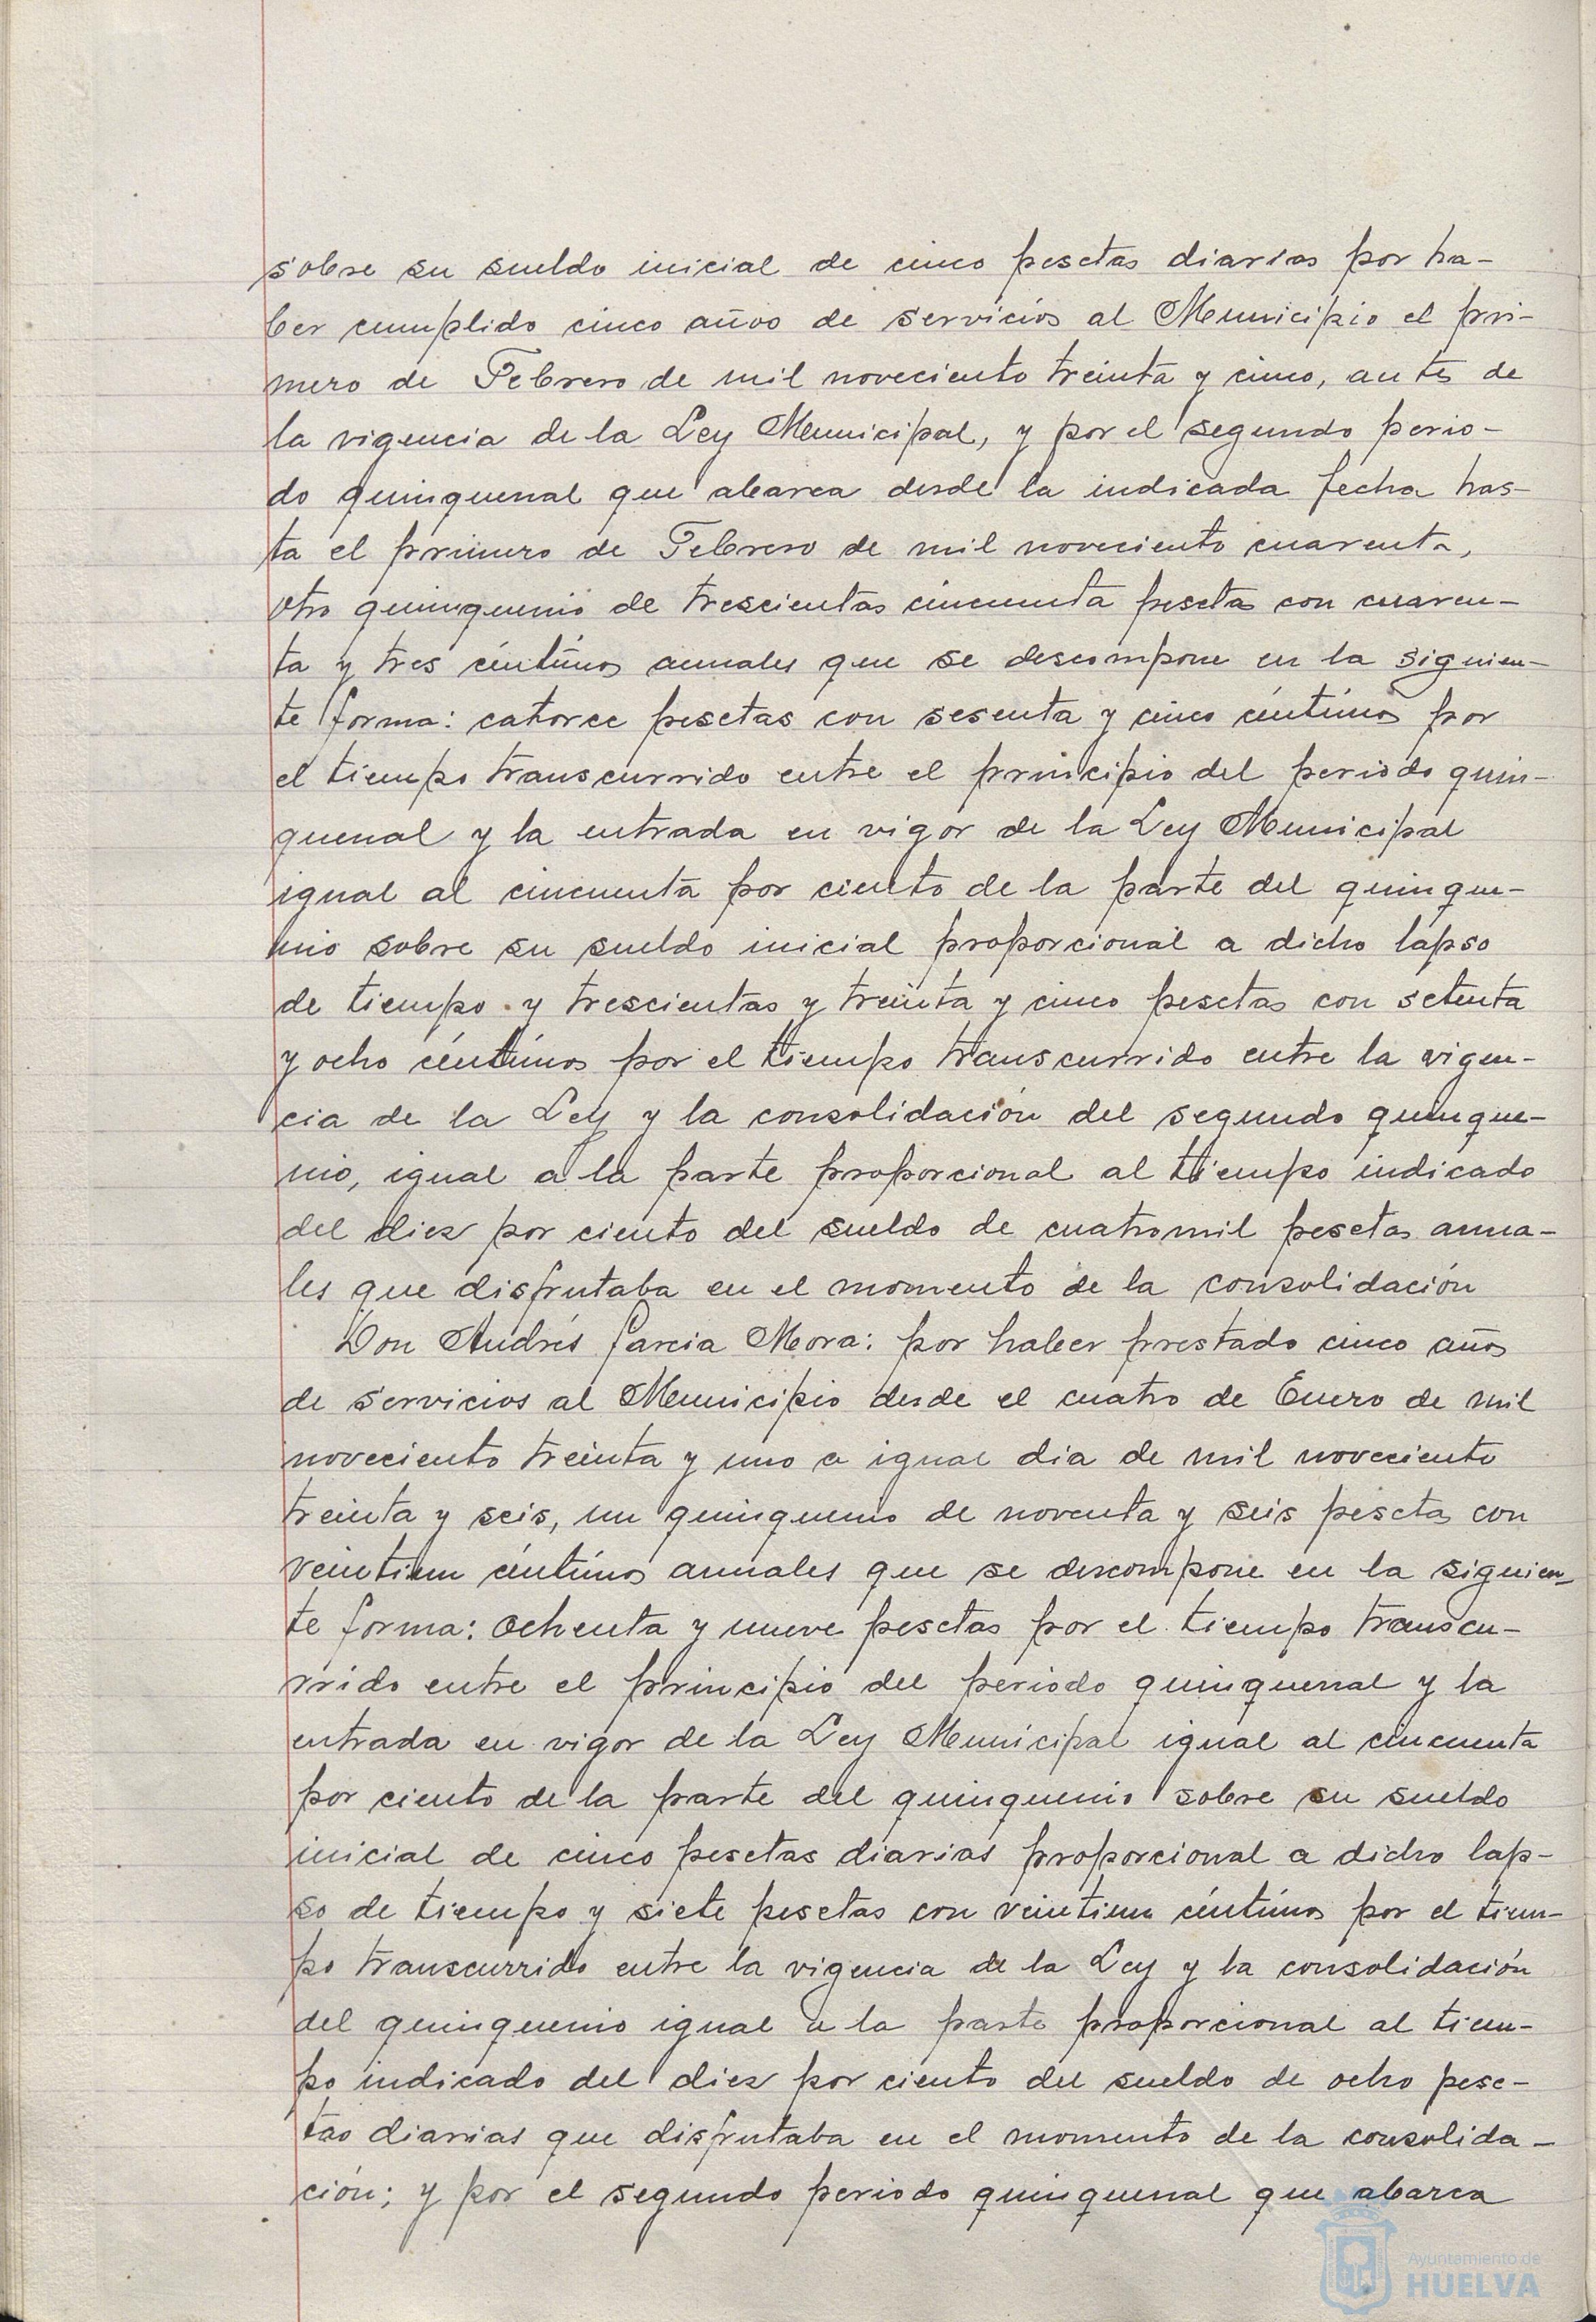 sobre su sueldo inicial de cinco pesetas diarias por ha-
ber cumplido cinco años de servicios al Municipio el pri-
mero de Febrero de mil noveciento treinta y cinco, antes de
la vigencia de la Ley Municipal, y por el segundo perio-
do quinquenal que abarca desde la indicada fecha has-
ta el primero de Febrero de mil noveciento cuarenta,
otro quinquenio de trescientas cincuenta pesetas con cuaren-
ta y tres céntimos anuales que se descompone en la siguien-
te forma: catorce pesetas con sesenta y cinco céntimos por
el tiempo transcurrido entre el principio del periodo quin-
quenal y la entrada en vigor de la Ley Municipal
igual al cincuenta por ciento de la parte del quinque-
nio sobre su sueldo inicial proporcional a dicho lapso
de tiempo y trescientas y treinta y cinco pesetas con setenta
y ocho céntimos por el tiempo transcurrido entre la vigen-
cia de la Ley y la consolidación del segundo quinque-
nio, igual a la parte proporcional al tiempo indicado
del diez por ciento del sueldo de cuatromil pesetas anua-
les que disfrutaba en el momento de la consolidación
Don Andrés Garcia Mora: por haber prestado cinco años
de servicios al Municipio desde el cuatro de Enero de mil
noveciento treinta y uno a igual dia de mil noveciento
treinta y seis, un quinquenio de noventa y seis pesetas con
veintiun céntimos anuales que se descompone en la siguien-
te forma: ochenta y nueve pesetas por el tiempo transcu-
rrido entre el principio del periodo quinquenal y la
entrada en vigor de la Ley Municipal igual al cincuenta
por ciento de la parte del quinquenio sobre su sueldo
inicial de cinco pesetas diarias proporcional a dicho lap-
so de tiempo y siete pesetas con veintiun céntimos por el tiem-
po transcurrido entre la vigencia de la Ley y la consolidación
del quinquenio igual a la parte proporcional al tiem-
po indicado del diez por ciento del sueldo de ocho pese-
tas diarias que disfrutaba en el momento de la consolida-
ción; y por el segundo periodo quinquenal que abarca
Ayuntamiento de
HUELVA